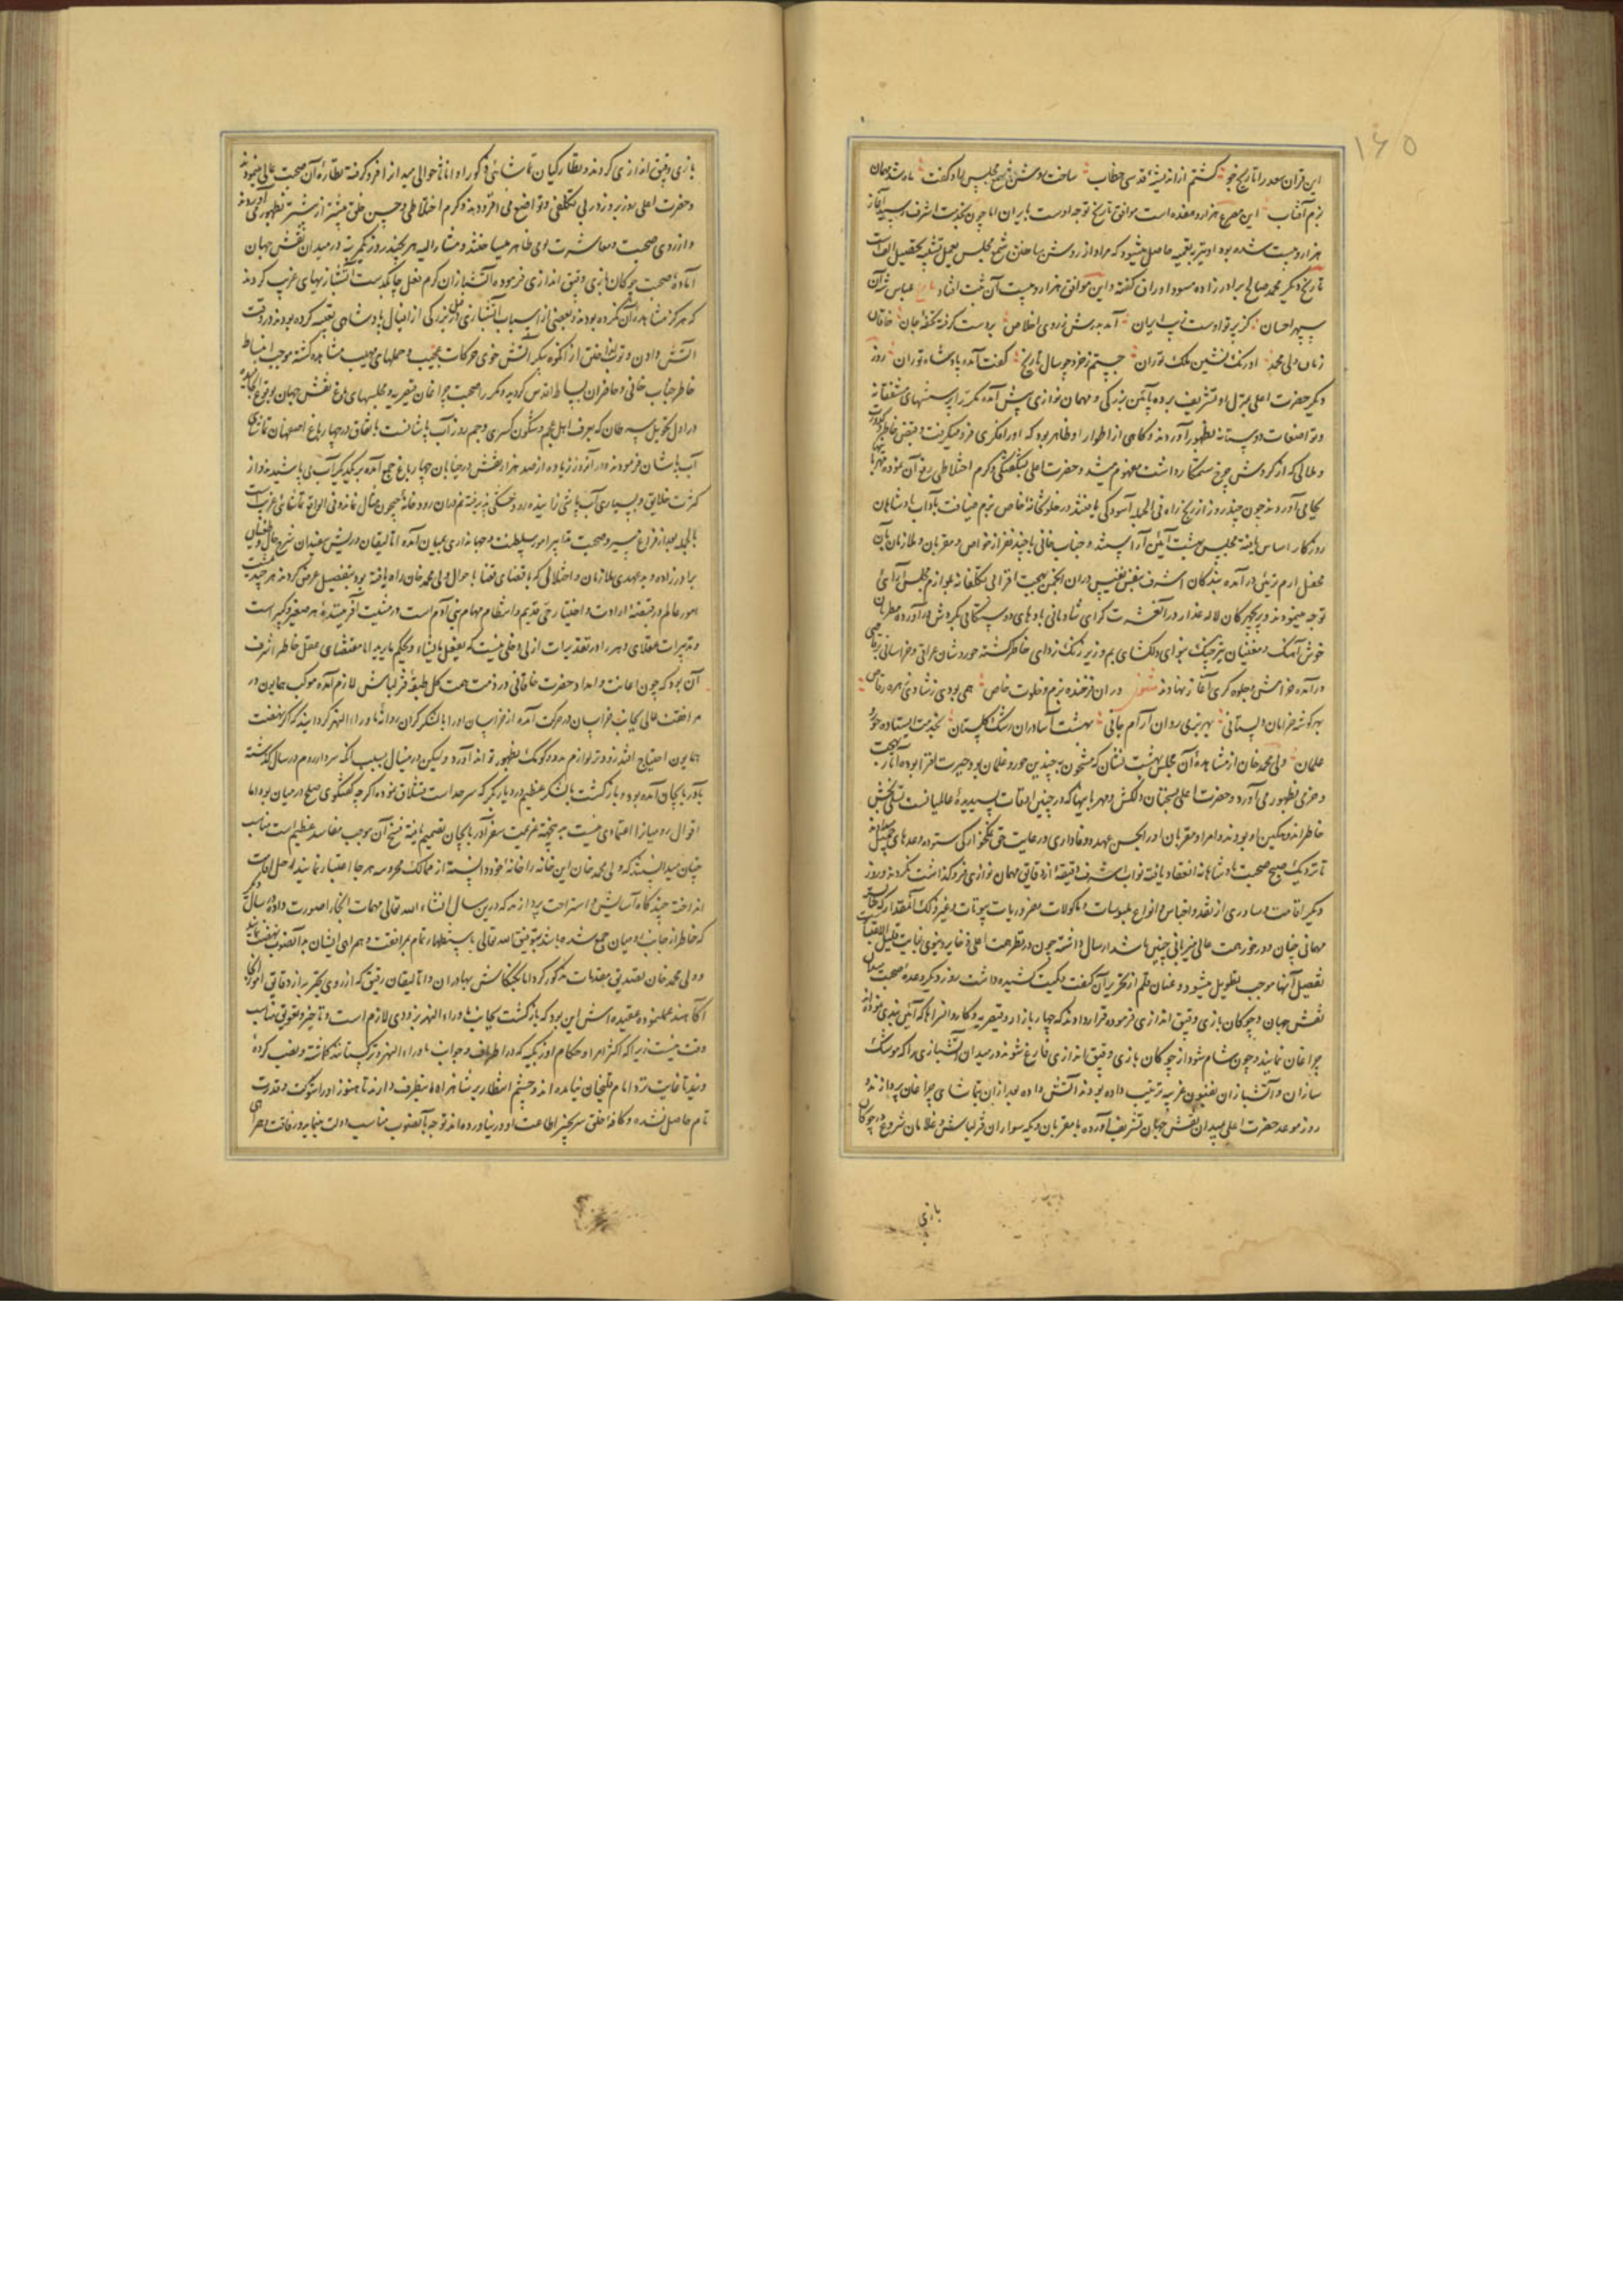 ۱۶۵
این قران سعد را تاریخ جو گشتم از اندیشهٔ قدسی خطاب ساخت روشن شمع مجلس ماه و گفت ماه شد مهمان
بزم آفتاب این مصرع هزار و هفده است موافق تاریخ توجه اوست بایران اما چون بخدمت اشرف رسید آغاز
هزار و بیست شده بود
تاریخ دیگر محمد صالح برادرزاده مسود اوراق گفته و این موافق هزار و بیست آن ثبت افتاد تاریخ عباس شه آن
سپهر احسان کز پرتو اوست زیب ایران آمد بدرش ز روی اخلاص بر دست گرفته تحفهٔ جان خاقان
زمان ولی محمد اورنک نشین ملک توران جستم ز خرد چو سال تاریخ گفت آمده پادشاه توران روز
دیگر حضرت اعلی بمنزل او تشریف برده بآئین بزرگی و مهمان نوازی پیش آمده مکرر پرسشهای مشفقانه
و تواضعات دوستانه بظهور آوردند و گاهی از اطوار او ظاهر بود که اورا فکری فرو میگرفت و قبض خاطر
و ملالی که از گردش چرخ ستمکار داشت مفهوم میشد و حضرت اعلی بشگفتگی و گرم اختلاطی رفع آن نموده
بجا می آوردند چون چند روز از رنج راه فی الجمله آسودگی یافتند در خلوتخانهٔ خاص بزم ضیافت بآداب پادشاهان
روزگار اساس یافته مجلس بهشت آئین آراستند و جناب خانی با چند نفر از خواص و مقربان و ملازمان بآن
محفل ارم تزئین درآمده بندگان اشرف بنفس نفیس در آن انجمن بهجت افزا بی تکلفانه بلوازم مجلس آرائی
توجه مینمودند و پریچهرگان لاله عذار
خوش آهنگ و مغنیان تیزچنگ بنوای دلگشای بم و زیر زنگ زدای خاطر گشته
درآمده خرامش و جلوه گری آغاز نهادند مثنوی در ان فرخنده بزم و خلوت خاص همی بودی ز شادی زهره رقاص
بهر گوشه خرامان دلستانی بهر بزمی روان آرام جانی بهشت آسا در ان رشک گلستان بخدمت ایستاده حور و
غلمان ولی محمد خان از مشاهدهٔ آن مجلس بهشت نشان که مشحون به چندین حور و غلمان بود حیرت افزا بوده آثار بهجت
و خرمی بظهور می آورد و حضرت اعلی بسخنان دلکش و مهربانیها که در چنین اوقات پسندیدهٔ عالمیانست تسلی بخش
خاطر اندوهگین او بودند
تا نزدیک صبح صحبت پادشاهانه انعقاد یافته نواب اشرف دقیقهٔ از دقایق مهمان نوازی فرو گذاشت نکردند و روز
دیگر اقامت و ساوری از نقد و اجناس و انواع ملبوسات و ماکولات و ضروریات بیوتات و غیر ذلک آنقدار که
مهمانی چنان و در خور همت عالی میزبانی چنین باشد ارسال داشته چون در نظر همت اعلی ذخایر دنیوی بغایت قلیل
تفصیل آنها موجب تطویل میشود و عنان قلم از تحریر آن کیفیت و کمیت کشیده داشت روز دیگر وعدهٔ صحبت میدان
نقش جهان و چوگان بازی و قبق اندازی فرموده قرار دادند که چهار بازار و قیصریه و کاروانسراها که آئین بندی
چراغان نمایند و چون شام شود از چوگان بازی و قبق اندازی فارغ شوند در میدان آتشبازی را که موشک
سازان و آتشبازان بفنون غریبه ترتیب داده بودند آتش داده بعد از ان بتماشای چراغان پردازند و
روز موعد حضرت اعلی بمیدان نقش جهان تشریف آورده با مقربان و یکه سواران قزلباش و غلامان شروع در چوگان
بازی
بازی و قبق اندازی کردند و نظارگیان تماشائی ذکور او اناثا حوالی میدان را فرو گرفته نظارهٔ آن صحبت عالی مینمودند
و حضرت اعلی روز بروز در بی تکلفی و تواضع می افزودند و گرم اختلاطی و حسن خلق بیشتر از پیشتر بظهور می آوردند
و از روی صحبت و معاشرت او ظاهر میساختند و مشار الیه هر چند روز یکمرتبه در میدان نقش جهان
آمادهٔ صحبت چوگان بازی و قبق اندازی فرموده آتشبازان گرم فعل چابکدست آتشبازیهای غریب کردند
که هرگز مشاهده آن نکرده بودند و بعضی از اسباب آتشبازی
آتش دادن
خاطر جناب خانی و حاضران بساط اقدس گردید و مکرر صحبت چراغان قیصریه و مجلسهای باغ نقش جهان بوقوع
در اول تحویل سرطان که بعرف اهل عجم و شگون کسری و جم روز آب پاشانست باتفاق در چهار باغ اصفهان تماشای
آب پاشان فرمودند در آنروز زیاده از صد هزار نفس در خیابان چهار باغ جمع آمده بر یکدیگر آب می پاشیدند از
کثرت خلایق و بسیاری آب پاشی زاینده رود خشکی پذیرفته
بالجمله بعد از فراغ سیر و صحبت تدابیر امور سلطنت و جهانداری بمیان آمده اتالیقان و ریش سفیدان شرح حال
برادرزاده و بدعهدی ملازمان و اختلالی که باقتضای قضا باحوال ولی محمد خان راه یافته بود بتفصیل عرض کردند هر چند
امور عالم در قبضهٔ ارادت و اختیار حی قدیم و انتظام مهام بنی آدم است در مشیت آفرینندهٔ هر صغیر و کبیر است
و تدبیرات عقلای دهر را در تقدیرات ازلی دخلی نیست که یفعل ما یشاء و یحکم ما یرید اما مقتضای عقل خاطر اشرف
آن بود که چون اعانت و امداد حضرت خاقانی در ذمت همت کل طبقهٔ قزلباش لازم آمده موکب همایون در
مرافقت عالی بجانب خراسان در حرکت آمده از خراسان اورا با لشکر گران روانهٔ ماوراء النهر گردانند که اگر بنهضت
همایون احتیاج افتد زودتر لوازم مدد و کومک بظهور تواند آورد ولیکن درینسال بسبب آنکه سردار روم در سال گذشته
بآذربایجان آمده بود و بازگشت با لشکر عظیم در دیار بکر که سرحد است قشلاق نموده اگرچه گفتگوی صلح در میان بود اما
اقوال رومیان را اعتمادی نیست بدین جهت عزیمت سفر آذربایجان تصمیم یافته فسخ آن موجب مفاسد عظیم است مناسب
چنان میدانستند که ولی محمد خان این خانه را خانهٔ خود دانسته از ممالک محروسه هر جا اختیار نمایند رحل اقامت
انداخته چندگاه بآسایش و استراحت پردازند که درین سال انشاء الله تعالی مهمات آنجا را صورت داده سال دیگر
که خاطر از جانب رومیان جمع شده باشد بتوفیق الله تعالی باستظهار تمام بمرافقت و همراهی ایشان بدآنصوب نهضت نمایند
و ولی محمد خان تصدیق مقدمات مذکور کرد اما کنکاش بهادران و اتالیقان رفیق که از روی تجربه از دقایق امور آنجا
آگاهند عقیده اش این بود که بازگشت بجانب ماوراء النهر بزودی لازم است و تاخیر و تعویق مناسب
وقت نیست زیرا که اکثر امرا و حکام اوزبکیه که در اطراف و جوانب ماوراء النهر و ترکستانند گماشته و نصب کردهٔ
ویند تا غایت نزد امام قلیخان نیامده اند و چشم انتظار بر شاهراه اینطرف دارند تا هنوز اورا شوکت و قدرت
تام حاصل نشده و کافهٔ خلق سر بچنبر اطاعت او در نیاورده اند توجه بآنصوب مناسب دولت مینماید و رفاقت و همراهی